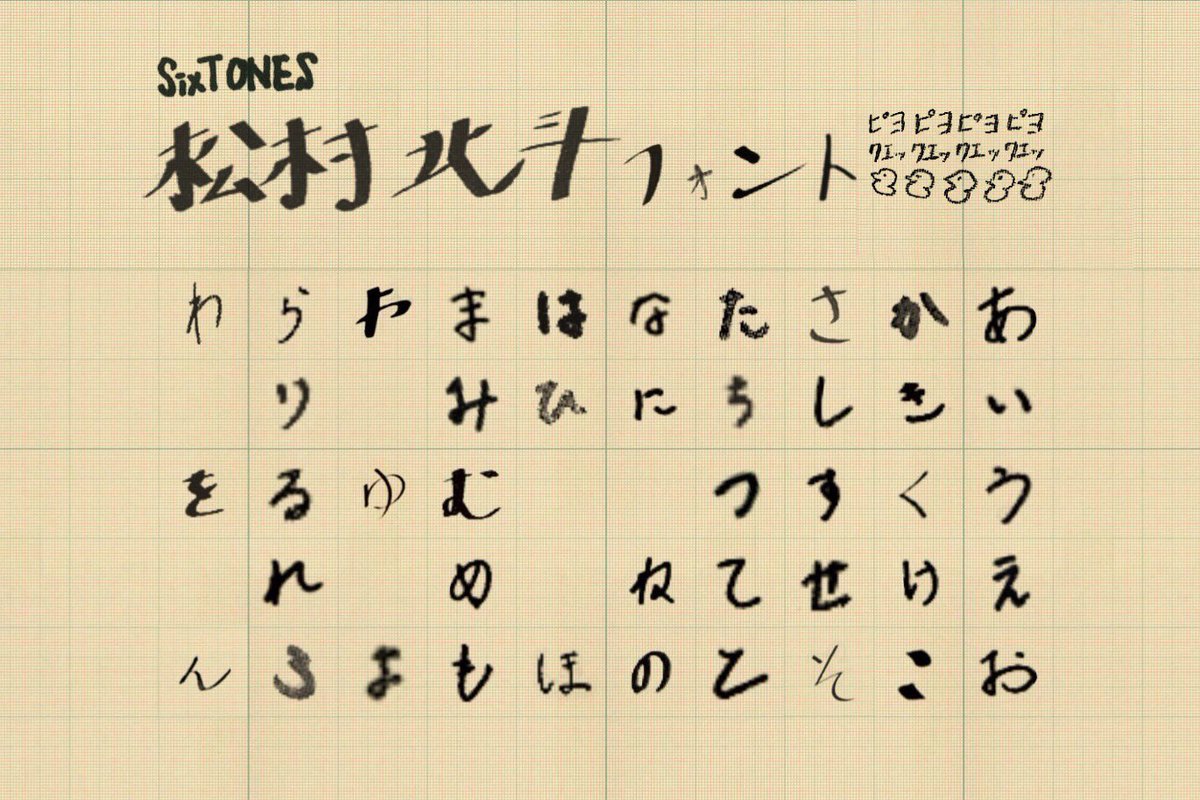 SixTONES
松村北斗フォント
ピヨピヨピヨピヨ
クエックエックエックエッ
あいうえお
かきくけこ
さしすせそ
たちつてと
なにねの
はひほ
まみむめも
やゆよ
らりるれろ
わをん